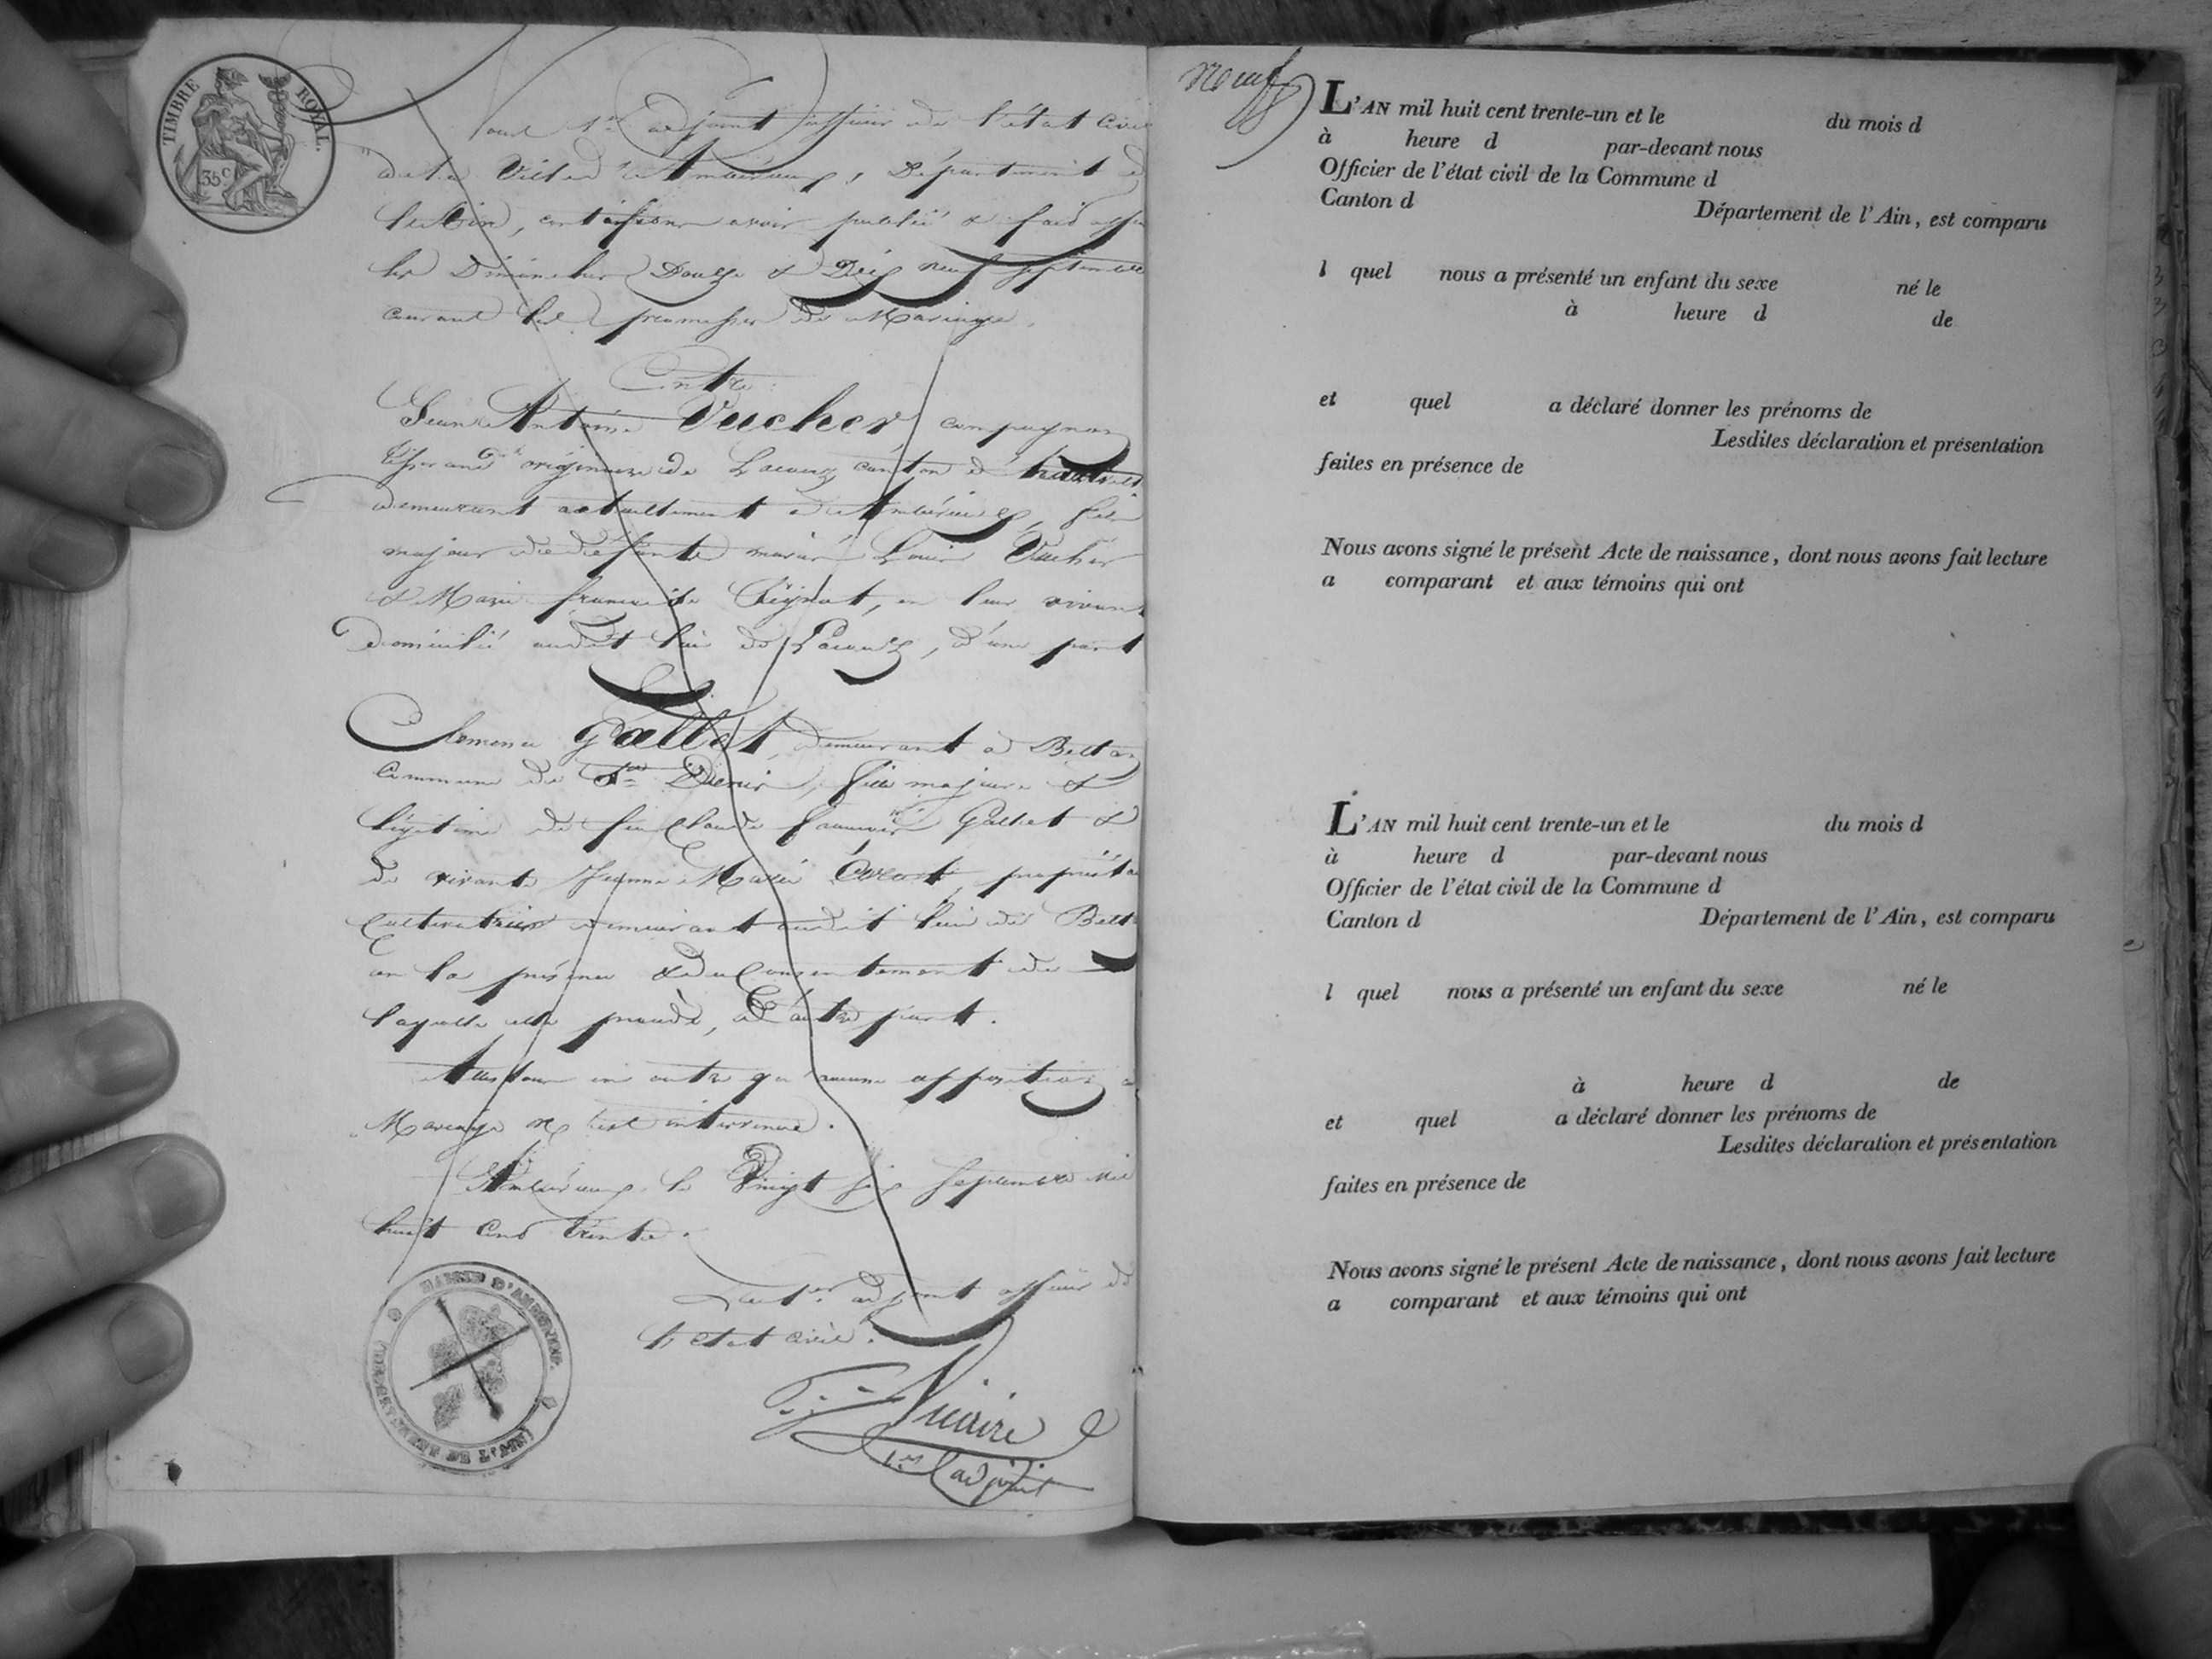 TIMBRE ROYAL.
35 c
1er adjoint officier de l'état civil
de la Ville d'Ambérieux, Département de
l'ain, certifions avoir publié & fait
les Dimanches Douze & Dix neuf septembre
courant les promesses de Mariage
Entre
Jean Antoine Vucher compagnon
tisserand originaire de Lacoux canton d'
demeurant actuellement à Ambérieux, fils
majeur de défunts mariés Louis Vucher
& Marie françoise, en leur vivant
domicilié audit lieu de Lacoux, d'une part
Clemence Gallet, demeurant à
Commune de St. Denis, fille majeure &
légitime de feu Claude Gallet &
de vivante Jeanne Marie, propriétaire
cultivatrice demeurant audit lieu de
en la présence & du Consentement de
laquelle elle procède, d'autre part.
Attestons en outre qu'aucune opposition
Mariage n'est intervenue.
Ambérieux le Vingt six septembre mil
huit cent trente.
Le 1er. adjoint officier de
l'état civil.
MAIRIE D'AMBERIEUX
(DEPARTEMENT DE L'AIN)
1er adjoint
neuf
L'AN mil huit cent trente-un et le du mois d
à heure d par-devant nous
Officier de l'état civil de la Commune d
Canton d Département de l'Ain, est comparu
l quel nous a présenté un enfant du sexe né le
à heure d de
et quel a déclaré donner les prénoms de
Lesdites déclaration et présentation
faites en présence de
Nous avons signé le présent Acte de naissance, dont nous avons fait lecture
a comparant et aux témoins qui ont
L'AN mil huit cent trente-un et le du mois d
à heure d par-devant nous
Officier de l'état civil de la Commune d
Canton d Département de l'Ain, est comparu
l quel nous a présenté un enfant du sexe né le
à heure d de
et quel a déclaré donner les prénoms de
Lesdites déclaration et présentation
faites en présence de
Nous avons signé le présent Acte de naissance, dont nous avons fait lecture
a comparant et aux témoins qui ont